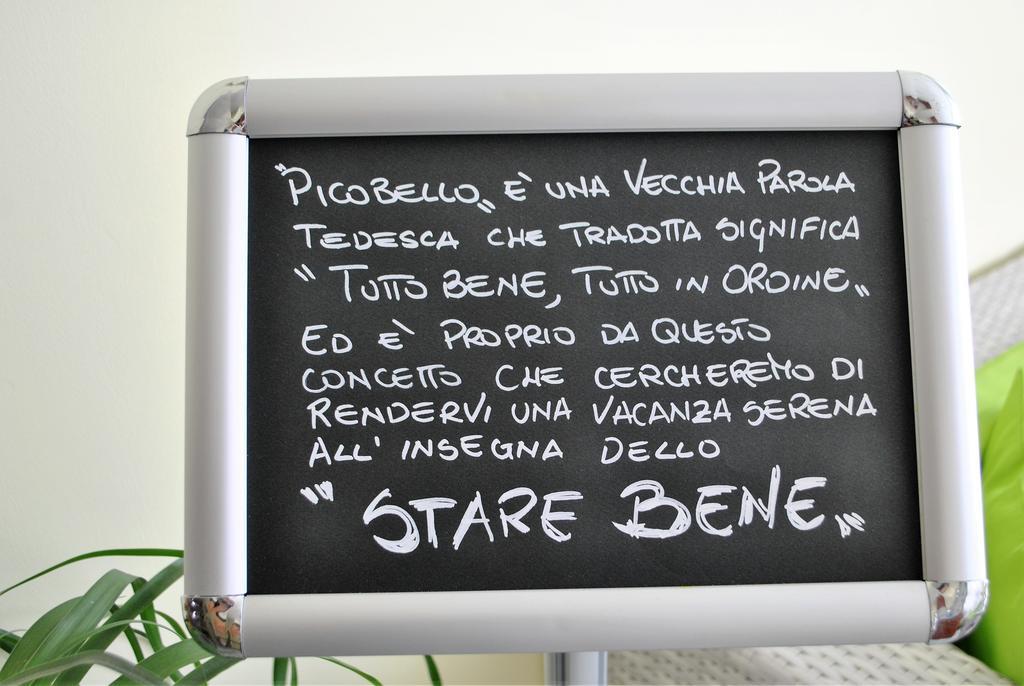 "PICOBELLO" È UNA VECCHIA PAROLA
TEDESCA CHE TRADOTTA SIGNIFICA
"TUTTO BENE, TUTTO IN ORDINE"
ED È PROPRIO DA QUESTO
CONCETTO CHE CERCHEREMO DI
RENDERVI UNA VACANZA SERENA
ALL'INSEGNA DELLO
"STARE BENE"